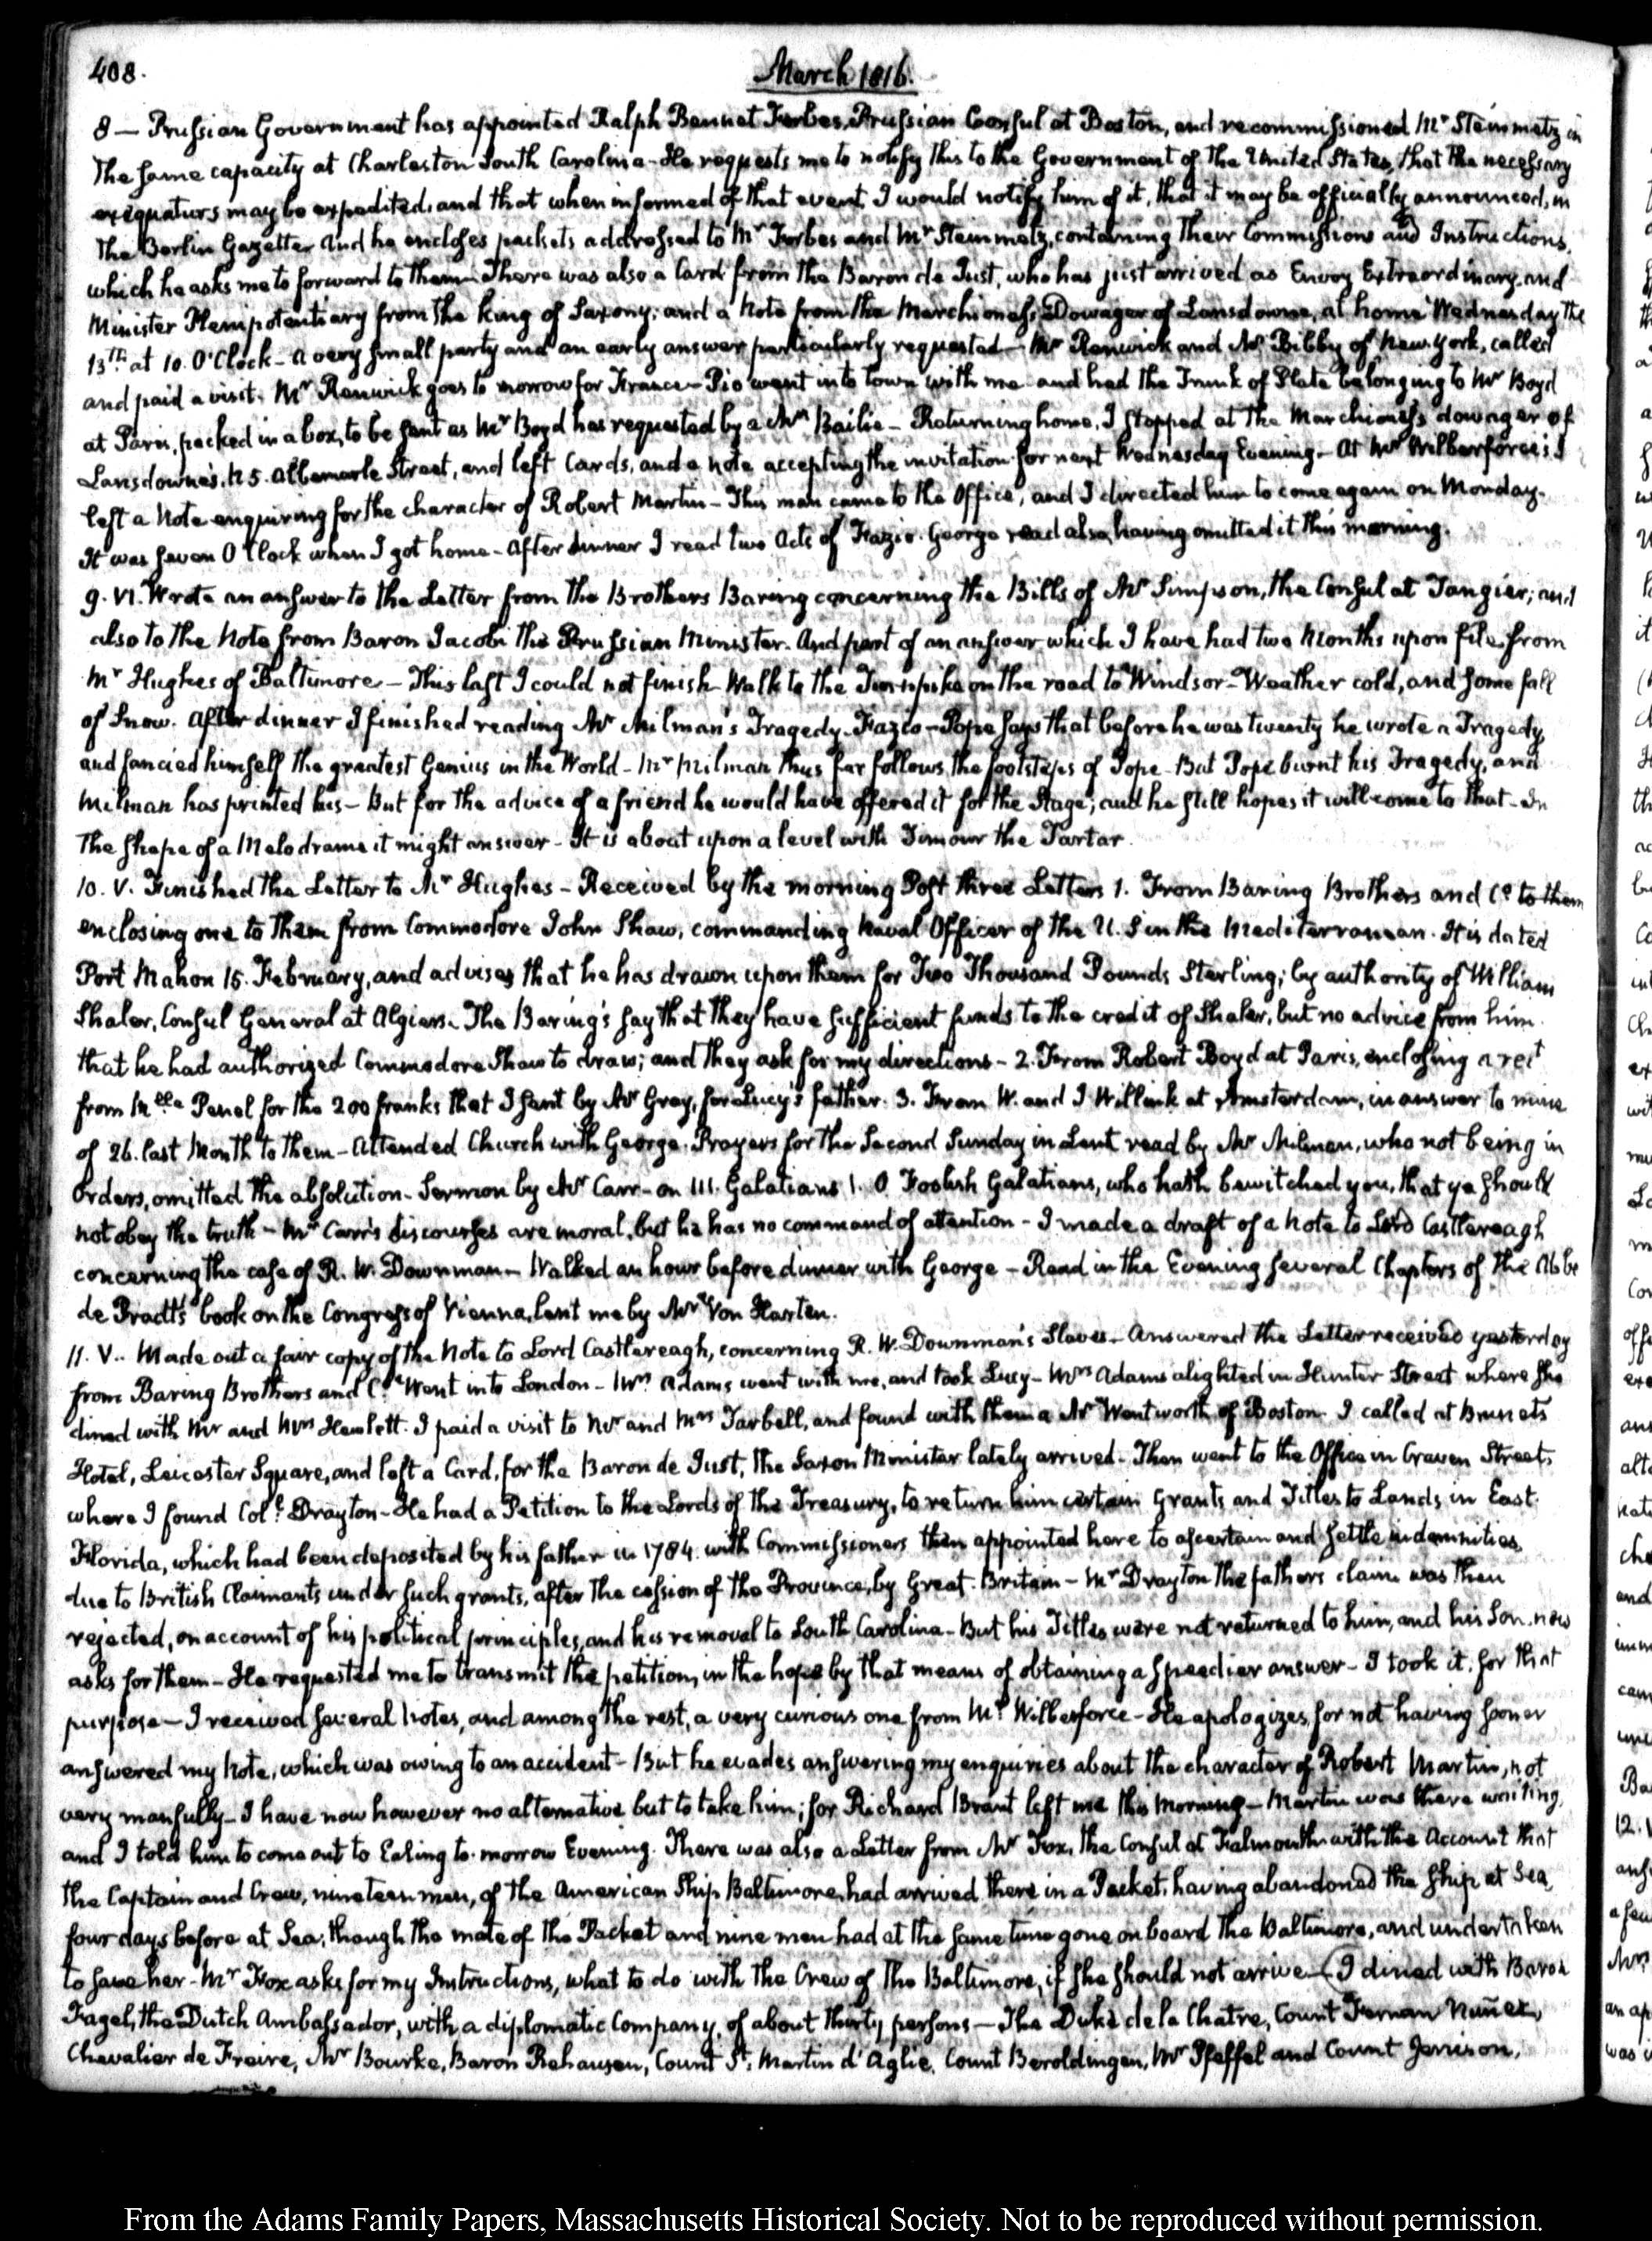 408.
March 1816.
8 — Prussian Government has appointed Ralph Bennet Forbes, Prussian Consul at Boston, and recommissioned Mr Steinmetz in
the same capacity at Charleston South Carolina - He requests me to notify this to the Government of the United States, that the necessary
exequaturs may be expedited, and that when informed of that event, I would notify him of it, that it may be officially announced, in
the Berlin Gazette. And he encloses packets addressed to Mr Forbes and Mr Steinmetz, containing their Commissions and Instructions,
which he asks me to forward to them - There was also a Card from the Baron de Just, who has just arrived as Envoy Extraordinary and
Minister Plenipotentiary from the King of Saxony; and a Note from the Marchioness Dowager of Lansdowne, at home Wednesday the
13th at 10. O'Clock - a very small party and an early answer particularly requested - Mr Renwick and Mr Bibby of New York, called
and paid a visit. Mr Renwick goes to morrow for France - Pio went into town with me and had the Trunk of Plate belonging to Mr Boyd
at Paris, packed in a box, to be sent as Mr Boyd has requested by a Mr Bailie - Returning home, I stopped at the Marchioness dowager of
Lansdowne's, N 5. Albemarle Street, and left Cards, and a note accepting the invitation for next Wednesday Evening - At Mr Wilberforce's I
left a Note enquiring for the character of Robert Martin - This man came to the Office, and I directed him to come again on Monday.
It was seven O'Clock when I got home - After dinner I read two Acts of Fazio. George read also, having omitted it this morning.
9. VI. Wrote an answer to the Letter from the Brothers Baring concerning the Bills of Mr Simpson, the Consul at Tangier; and
also to the Note from Baron Jacobi the Prussian Minister. And part of an answer which I have had two Months upon file, from
Mr Hughes of Baltimore - This last I could not finish - Walk to the Turnpike on the road to Windsor - Weather cold, and some fall
of Snow. After dinner I finished reading Mr Milman's Tragedy. Fazio - Pope says that before he was twenty he wrote a Tragedy,
and fancied himself the greatest Genius in the World - Mr Milman thus far follows the footsteps of Pope - But Pope burnt his Tragedy, and
Milman has printed his - But for the advice of a friend he would have offered it for the Stage; and he still hopes it will come to that - In
the shape of a Melodrama it might answer - It is about upon a level with Timour the Tartar.
10. V. Finished the Letter to Mr Hughes - Received by the morning Post three Letters 1. From Baring Brothers and Co to them
enclosing one to them from Commodore John Shaw, commanding Naval Officer of the U. S in the Mediterranean. It is dated
Port Mahon 15. February, and advises that he has drawn upon them for Two Thousand Pounds Sterling; by authority of William
Shaler, Consul General at Algiers. The Baring's say that they have sufficient funds to the credit of Shaler, but no advice from him
that he had authorized Commodore Shaw to draw; and they ask for my directions - 2. From Robert Boyd at Paris, enclosing a rect
from Melle Penel for the 200 franks that I sent by Mr Gray, for Lucy's father. 3. From W. and J Willink at Amsterdam, in answer to mine
of 26. last Month to them - Attended Church with George. Prayers for the Second Sunday in Lent read by Mr Milman, who not being in
Orders, omitted the absolution. Sermon by Mr Carr - on III. Galatians 1. O Foolish Galatians, who hath bewitched you, that ye should
not obey the truth - Mr Carr's discourses are moral, but he has no command of attention - I made a draft of a Note to Lord Castlereagh
concerning the case of R. W. Downman - Walked an hour before dinner with George - Read in the Evening several Chapters of the Abbe
de Pradt's book on the Congress of Vienna, lent me by Mr Von Harten.
11. V. Made out a fair copy of the Note to Lord Castlereagh, concerning R. W. Downman's Slaves - Answered the Letter received yesterday
from Baring Brothers and Co Went into London - Mrs Adams went with me, and took Lucy - Mrs Adams alighted in Hunter Street where she
dined with Mr and Mrs Hewlett. I paid a visit to Mr and Mrs Tarbell, and found with them a Mr Wentworth of Boston. I called at Brunet's
Hotel, Leicester Square, and left a Card, for the Baron de Just, the Saxon Minister lately arrived. Then went to the Office in Craven Street,
where I found Coll Drayton - He had a Petition to the Lords of the Treasury, to return him certain Grants and Titles to Lands in East
Florida, which had been deposited by his father in 1784. with Commissioners then appointed here to ascertain and settle indemnities,
due to British Claimants under such grants, after the cession of the Province, by Great Britain - Mr Drayton the fathers claim was then
rejected, on account of his political principles, and his removal to South Carolina - But his Titles were not returned to him, and his Son now
asks for them - He requested me to transmit the petition, in the hope by that means of obtaining a speedier answer - I took it, for that
purpose - I received several Notes, and among the rest, a very curious one from Mr Wilberforce - He apologizes for not having sooner
answered my Note, which was owing to an accident - But he evades answering my enquiries about the character of Robert Martin, not
very manfully - I have now however no alternative but to take him; for Richard Brant left me this morning - Martin was there waiting,
and I told him to come out to Ealing to-morrow Evening. There was also a Letter from Mr Fox, the Consul at Falmouth with the Account that
the Captain and Crew, nineteen men, of the American Ship Baltimore, had arrived there in a Packet, having abandoned the ship at Sea,
four days before at Sea, though the mate of the Packet and nine men had at the same time gone on board the Baltimore, and undertaken
to save her - Mr Fox asks for my Instructions, what to do with the Crew of the Baltimore, if she should not arrive - (I dined with Baron
Fagel, the Dutch Ambassador, with a diplomatic Company, of about thirty persons - The Duke de la Chatre, Count Fernan Nuñez,
Chevalier de Freire, Mr Bourke, Baron Rehausen, Count St. Martin d'Aglie, Count Beroldingen, Mr Pfeffel and Count Jenison,
From the Adams Family Papers, Massachusetts Historical Society. Not to be reproduced without permission.